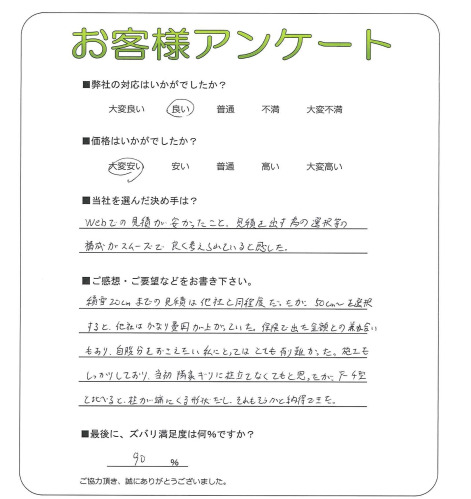 お客様アンケート
■弊社の対応はいかがでしたか？
大変良い 良い 普通 不満 大変不満
■価格はいかがでしたか？
大変安い 安い 普通 高い 大変高い
■当社を選んだ決め手は？
Webでの見積が安かったこと、見積を出す為の選択等の
構成がスムーズで良く考えられていると感じた。
■ご感想・ご要望などをお書き下さい。
積雪20cmまでの見積は他社と同程度だったが、50cm〜を選択
すると、他社はかなり金額が上がっていた。保険で出た金額との兼ね合い
もあり、自腹分をおさえたい私にとってはとても有り難かった。施工も
しっかりしており、当初隣家ギリに柱立てなくてもと思ったが、
と比べると、柱が端にくる形状だし、それもそうかと納得できた。
■最後に、ズバリ満足度は何%ですか？
90 %
ご協力頂き、誠にありがとうございました。